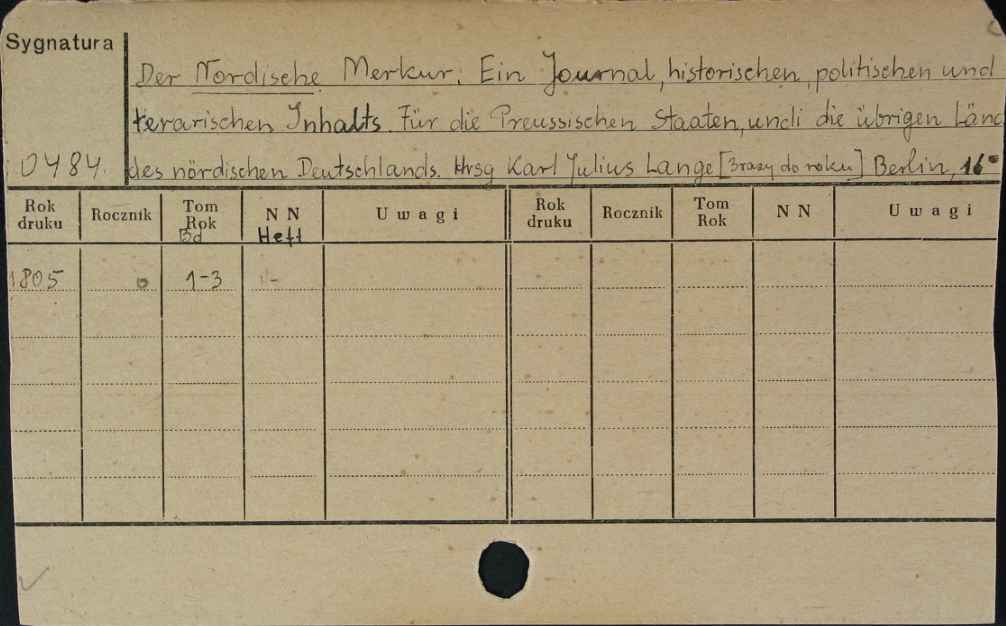 Sygnatura
Der Nordische Merkur. Ein Journal, historischen, politischen und
terarischen Inhalts. Für die Preussischen Staaten, und die übrigen Länd
0484. des nördischen Deutschlands. Hrsg Karl Julius Lange [3 razy do roku] Berlin, 16°
Rok druku Rocznik Tom Rok N N Uwagi Rok druku Rocznik Tom Rok N N Uwagi
Bd Heft
1805 1-3 -